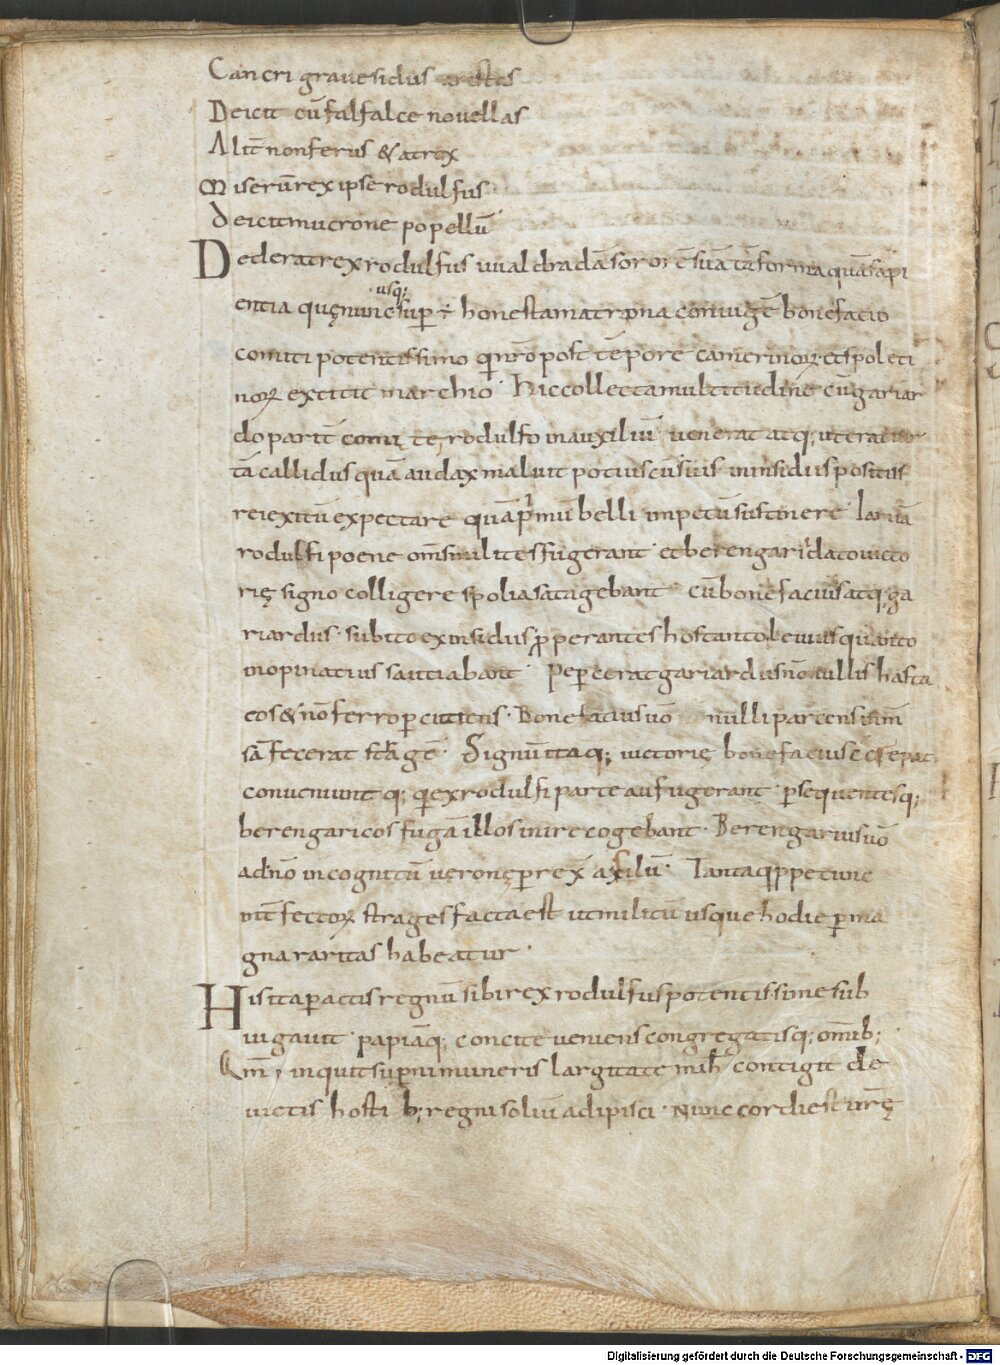 Cancri grauesidus aristas
Deicit cū falſ falce nouellas
Alit̄ nonferus & atrox
Miserūrex ipse rodulfus
deicitmucrone popellū
Dederatrex rodulfus uualdradā sororē suā tā forma quā sapi
entia quęnunc usq; sup̄ ē honestamatrona coniugē bonefacio
comiti potentissimo qui nr̄o post tēpore camerinoꝝ et spoleti
noꝝ extitit marchio. hic collectamultitudine cū gariar
do pariť comite, rodulfo inauxiliū uenerat atq; ut erat uir
tā callidus quā audax maluit potius cū suis ininsidiis positus
rei exitū expectare quā primū belli impetū sustinere. Iamiā
rodulfi poene om̄s milites fugerant et berengarii dato uicto
rię signo colligere spolia satagebant cū bonefacius atq; ga
riardus subito ex insidiis ꝓperantes hos tanto leuius quanto
inopinatius sautiabant. Pep̄cerat gariardus nōnullis hasta
eos & nō ferro p̄cutiens. Bonefacius uō nulli parcens inm̄
sā fecerat strāgē. Signū itaq; uictorię bonefacius
conueniunt q; qui ex rodulfi parte aufugerant p̄sequentesq;
berengaricos fugā illos inire cogebant. Berengarius uō
ad nō incognitū uerone p̄rexˉ axilū. Tanta q̄ppe tunc
int̄fectoꝝ strages facta est ut militū usque hodie p̄ma
gna raritas habeatur.
His ita p̄actis regnū sibi rex rodulfus potentissime sub
iugauit papiāq; concite ueniens congregatisq; omīb;
Qm̄, inquit sup̄ni muneris largitate mihi contigit de
uictis hosti b; regni soliū adipisci. Nunc cordi est ur̄ę
Digitalisierung gefördert durch die Deutsche Forschungsgemeinschaft - DFG